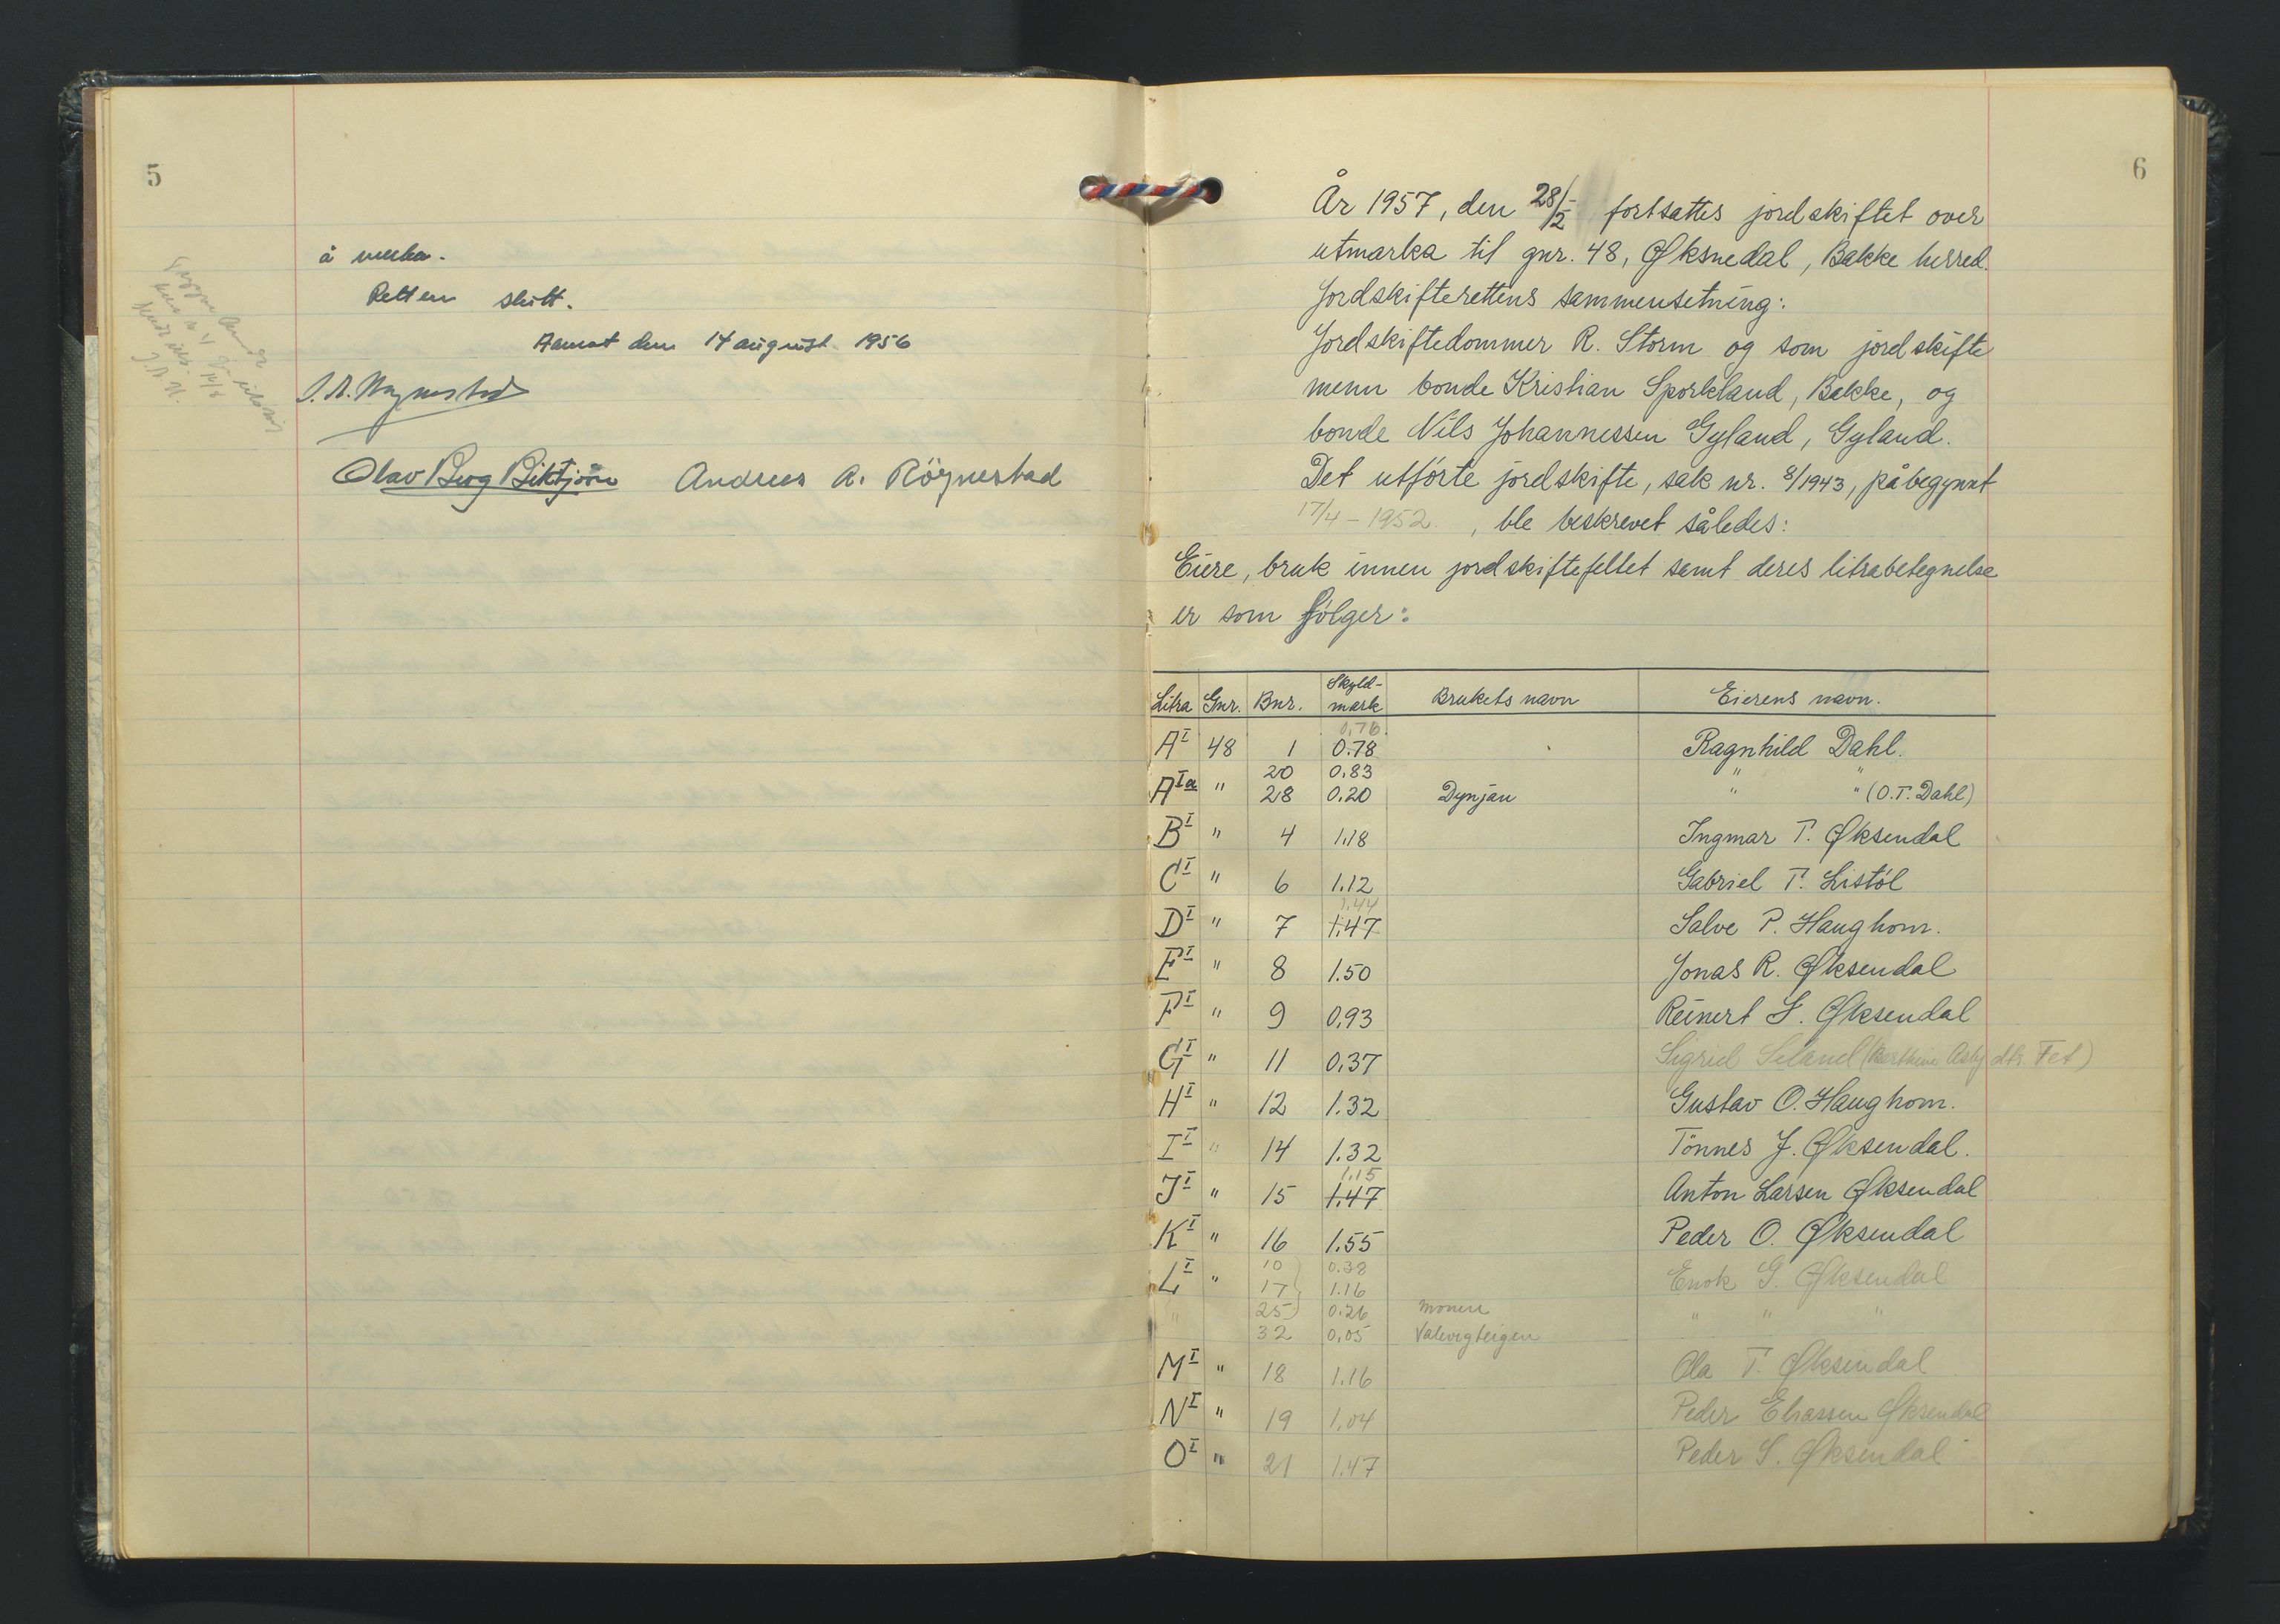 5
å merka.
Retten slutt.
Aamot den 14 august 1956
Olav Berg Biktjøn Andreas A. Röynestad
6
År 1957, den 28/2 fortsattes jordskiftet over
utmarka til gnr. 48, Øksnedal, Bakke herred.
Jordskifterettens sammensetning:
Jordskiftedommer R. Storm og som jordskifte
menn bonde Kristian Sporkland, Bakke, og
bonde Nils Johannessen Gyland, Gyland.
Det utförte jordskifte, sak nr. 8/1943, påbegynnt
17/4 - 1952. , ble beskrevet således:
Eiere, bruk innen jordskiftefeltet samt deres litrabetegnelse
er som fölger:
Litra Gnr. Bnr. Skyld-mark Brukets navn Eierens navn.
0,76
A I 48 1 0.78 Ragnhild Dahl.
20 0.83 " "
A Ia " 28 0.20 Dynjan " " (O.T. Dahl)
B I " 4 1.18 Ingmar T. Øksendal
C I " 6 1.12 Gabriel T. Listöl
1.44
D I " 7 1.47 Salve P. Haughom.
E I " 8 1.50 Jonas R. Øksendal
F I " 9 0,93 Reinert S. Øksendal
G I " 11 0,37 Sigrid Seland (Berthine Asbj.dtr. Fet)
H I " 12 1.32 Gustav O. Haughom.
I I " 14 1.32 Tönnes J. Øksendal.
1.15
J I " 15 1.47 Anton Larsen Øksendal
K I " 16 1.55 Peder O. Øksendal
10 0.38
L I " 17 1.16 Enok G. Øksendal
" 25 0.26 Monen " " "
32 0,05 Valevigteigen
M I " 18 1.16 Ola T. Øksendal
N I " 19 1,04 Peder Eliassen Øksendal
O I " 21 1.47 Peder S. Øksendal